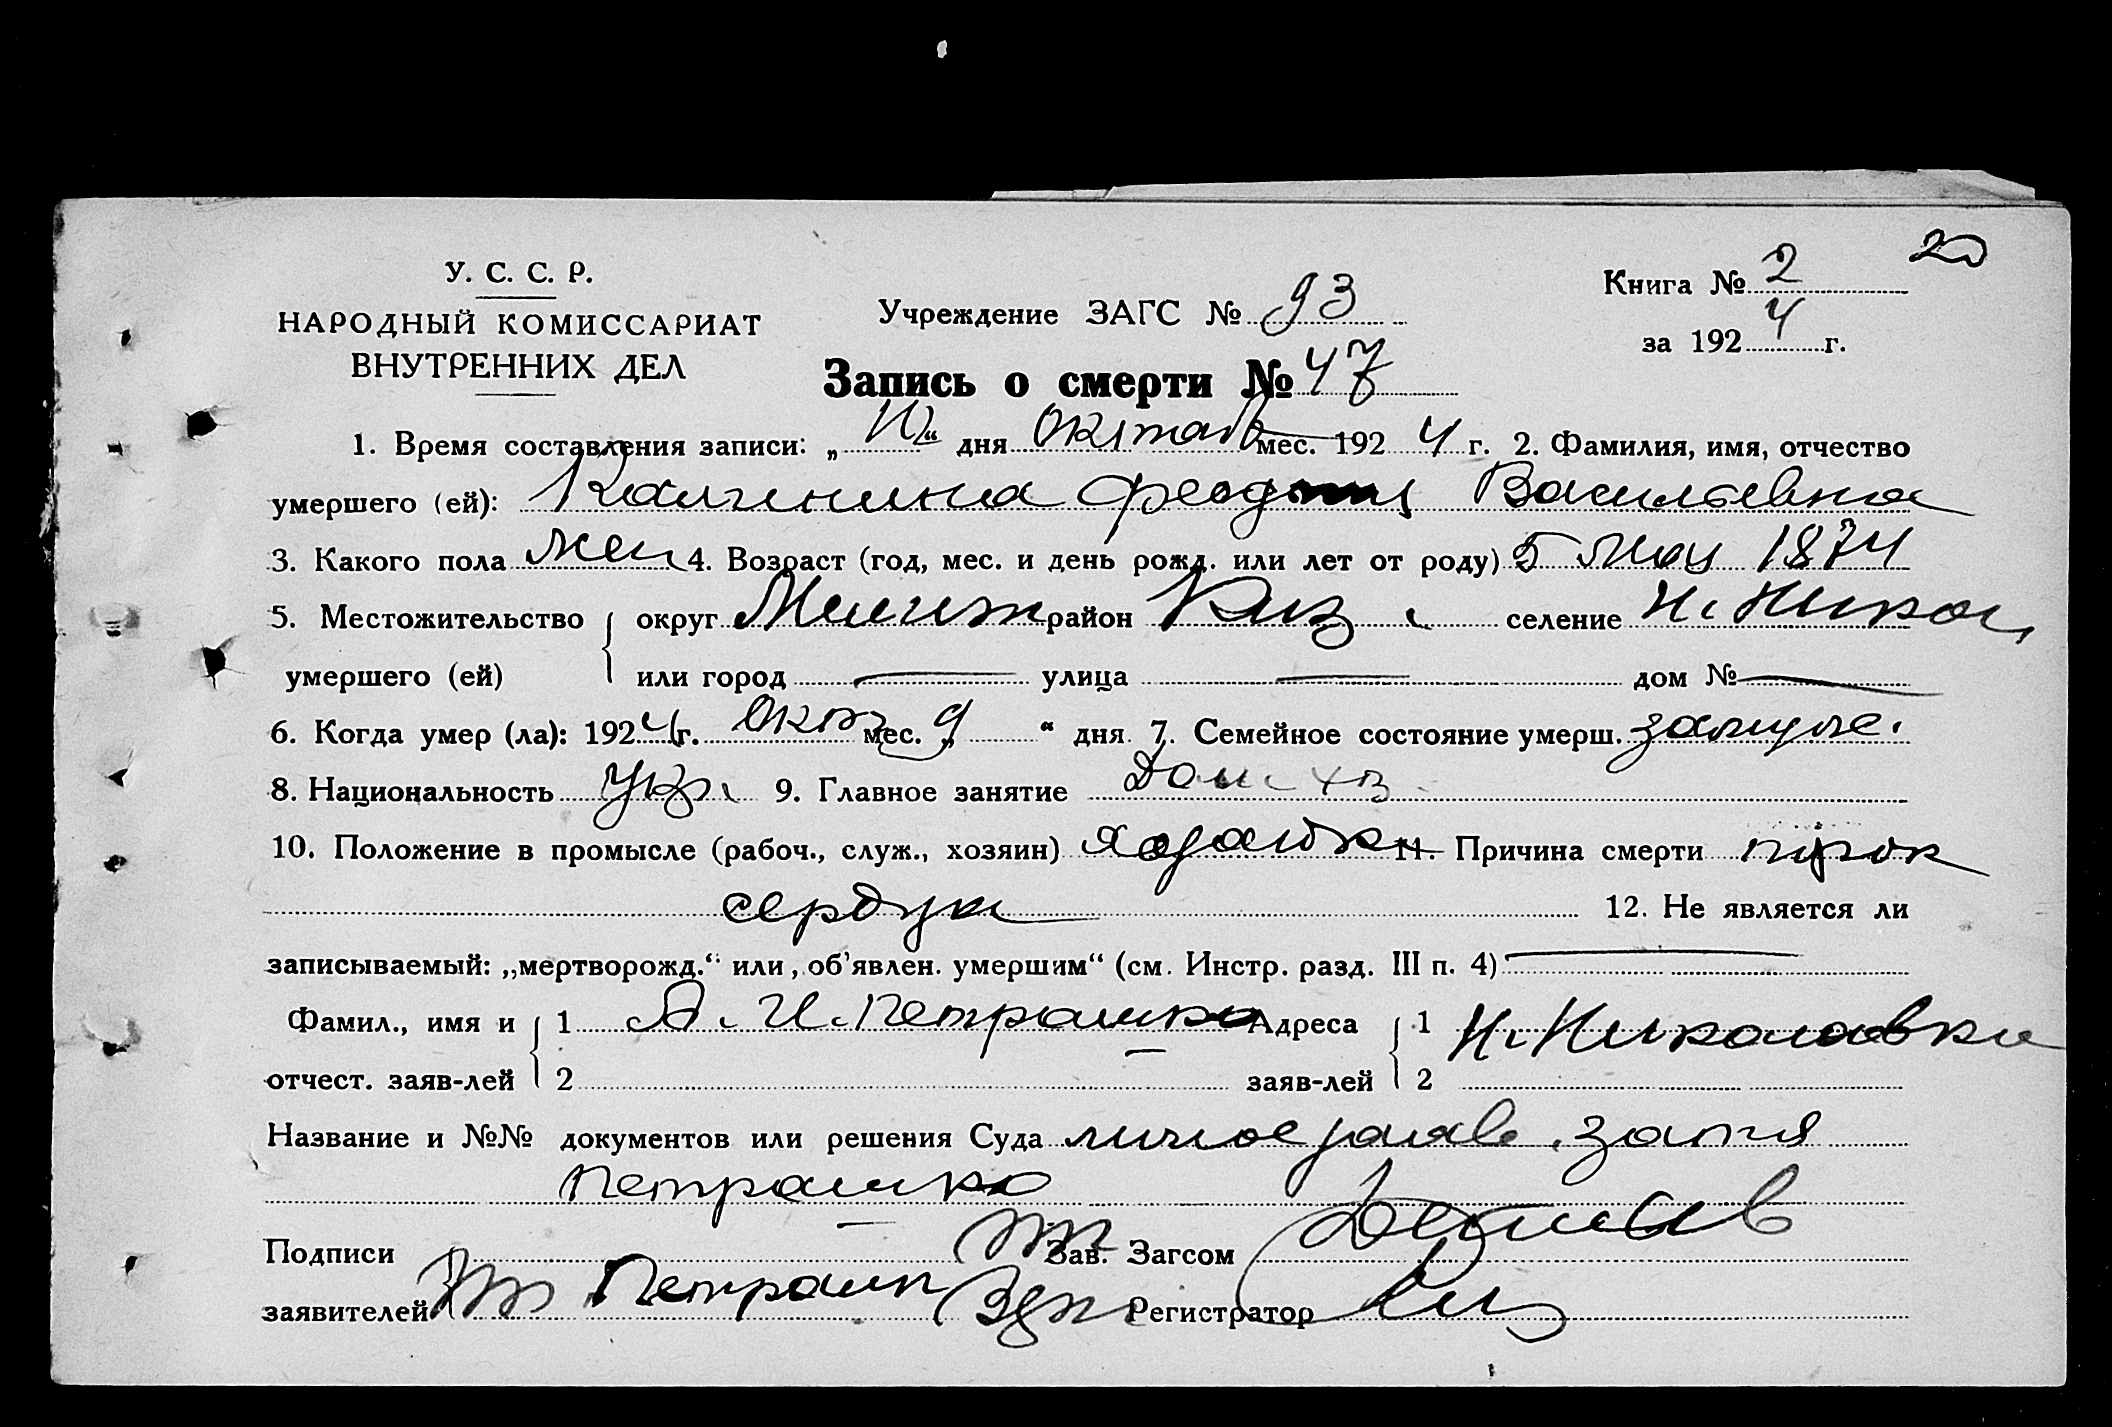 20
У. С. С. Р.
НАРОДНЫЙ КОМИССАРИАТ
ВНУТРЕННИХ ДЕЛ
Учреждение ЗАГС № 93
Книга № 2
за 1924 г.
Запись о смерти № 47
1. Время составления записи: „10“ дня Октяб мес. 1924 г. 2. Фамилия, имя, отчество
умершего (ей): Калинина Васильевна
3. Какого пола жен 4. Возраст (год, мес. и день рожд. или лет от роду) 5 Мая 1874
5. Местожительство округ Мелит район Киз. селение Н. Никол
умершего (ей) или город — улица — дом № —
6. Когда умер (ла): 1924 г. Окт мес. „ 9 “ дня 7. Семейное состояние умерш. замуже.
8. Национальность Укр. 9. Главное занятие Дом хоз
10. Положение в промысле (рабоч., служ., хозяин) 11. Причина смерти порок
сердца 12. Не является ли
записываемый: „мертворожд.“ или „об’явлен. умершим“ (см. Инстр. разд. III п. 4) —
Фамил., имя и 1 А. И. Петрашко Адреса 1 Н. Николаевка
отчест. заяв-лей 2 заяв-лей 2
Название и №№ документов или решения Суда личное заяв.
Петрашко
Подписи Зав. Загсом
заявителей Петрашк Регистратор